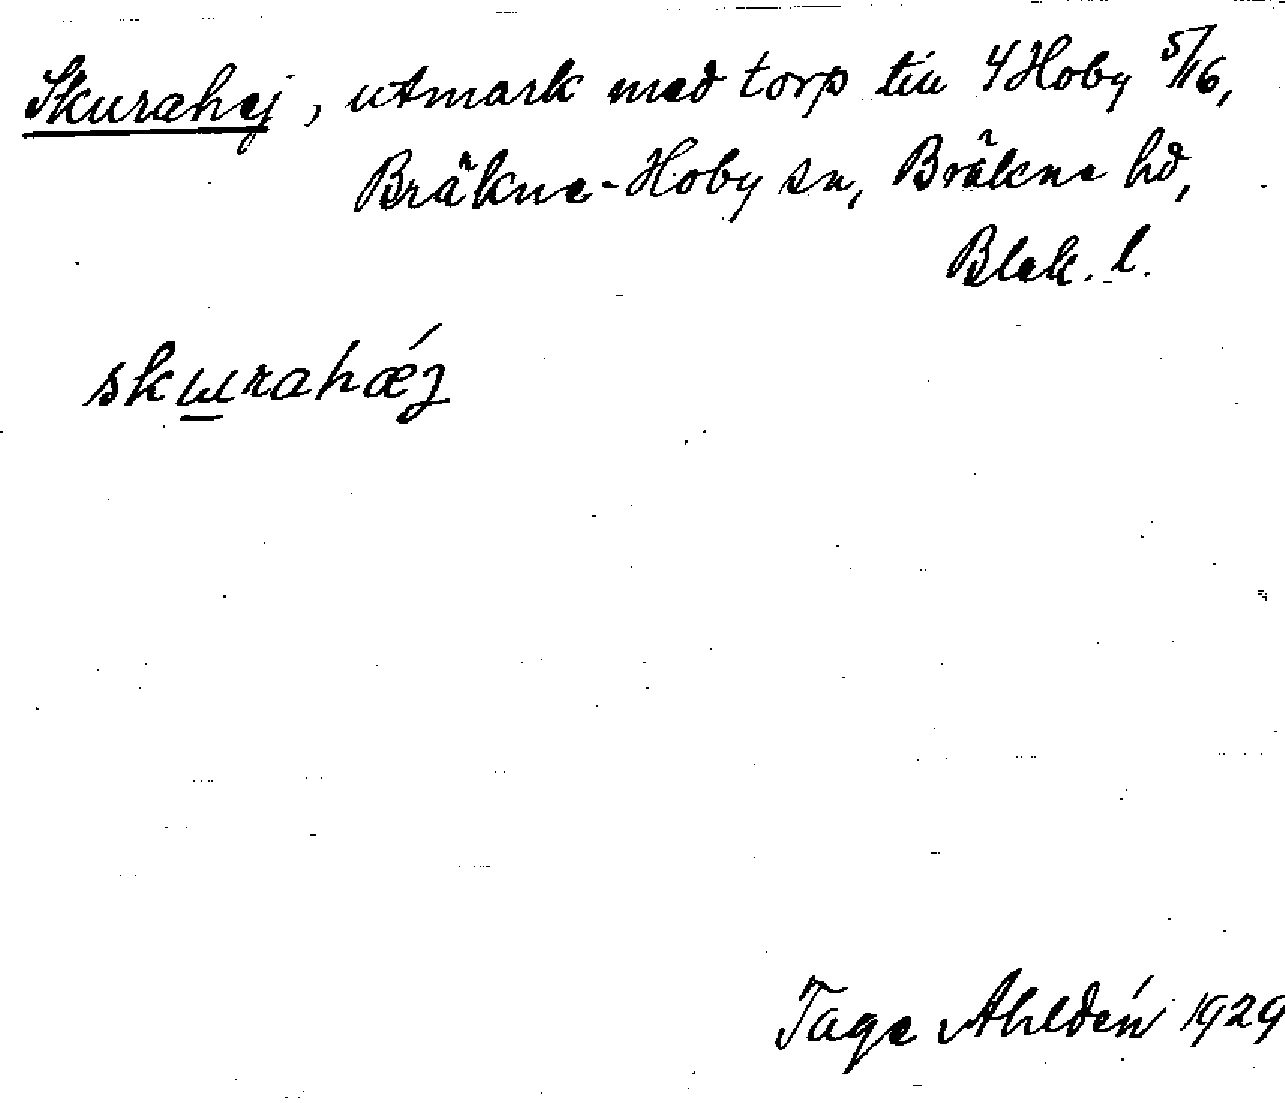 Skurahej, utmark med torp till 4 Hoby 5/16,
Bräkne-Hoby sn, Bräkne hd,
Blek. l.
skɯrahǽj
Tage Ahldén 1929